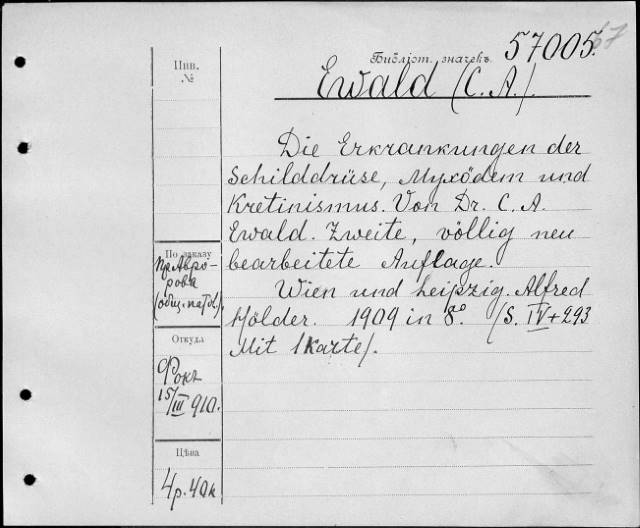 Библіот. значекъ 57005.
57
Ewald (C. A.).
Инв.
№
Die Erkrankungen der
Schilddrüse, Myxödem und
Kretinismus. Von Dr. C. A.
Ewald. Zweite, völlig neu
bearbeitete Auflage.
Wien und Leipzig. Alfred
Hölder. 1909 in 8º. (S. IV+293
Mit 1 Karte).
По заказу
пр. Авро-
рова
(общ. пато.).
Откуда
Фокъ
15/III 910.
Цѣна
4 р. 40 к